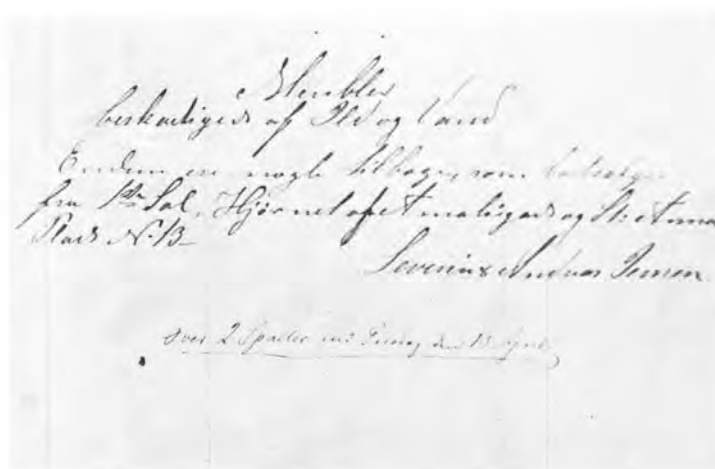 Meubler
beskadigede af Ild og Vand
Endnu ere nogle tilbage, som
fra 1ste Sal, Hjørnet af Amaliegade og St. Anna
Plads No 13
Severin & Andreas Jensen.
over 2 Spalter